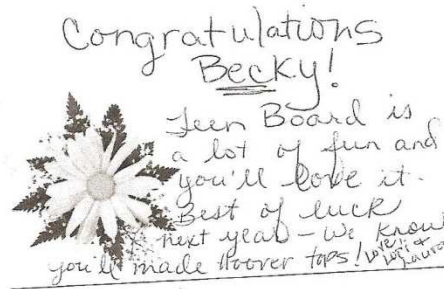 Congratulations
Becky!
Teen Board is
a lot of fun and
you'll love it.
Best of luck
next year - We know
you'll made Hoover tops!
Love,
Lori &
Laura